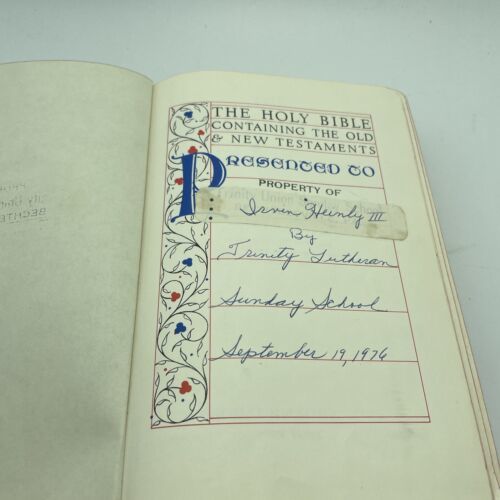 THE HOLY BIBLE
CONTAINING THE OLD
& NEW TESTAMENTS
PRESENTED TO
PROPERTY OF
Irvin Heinly III
By
Trinity Lutheran
Sunday School
September 19, 1976